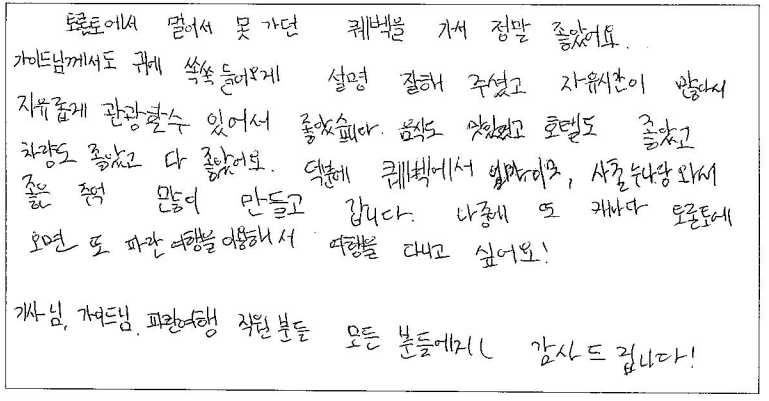 토론토에서 멀어서 못 가던 퀘벡을 가서 정말 좋았어요.
가이드님께서도 귀에 쏙쏙 들어오게 설명 잘해 주셨고 자유시간이 많아서
자유롭게 관광할수 있어서 좋았습니다. 음식도 맛있었고 호텔도 좋았고
차량도 좋았고 다 좋았어요. 덕분에 퀘벡에서 엄마, 이모, 사촌누나랑 와서
좋은 추억 많이 만들고 갑니다. 나중에 또 캐나다 토론토에
오면 또 파란여행을 이용해서 여행을 다니고 싶어요!
기사님, 가이드님, 파란여행 직원분들 모든 분들에게 감사드립니다!